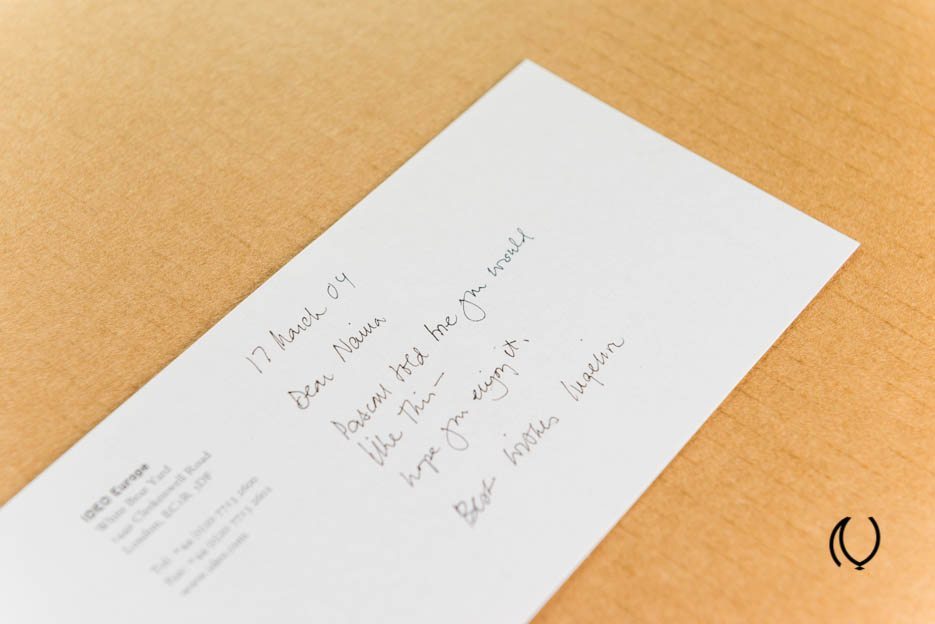 17 March 04
Dear Naina
Pascal told me you would
like this—
hope you enjoy it.
Best wishes
IDEO Europe
White Bear Yard
144a Clerkenwell Road
London, EC1R 5DF
Tel: +44 (0)20 7713 2600
Fax: +44 (0)20 7713 2601
www.ideo.com